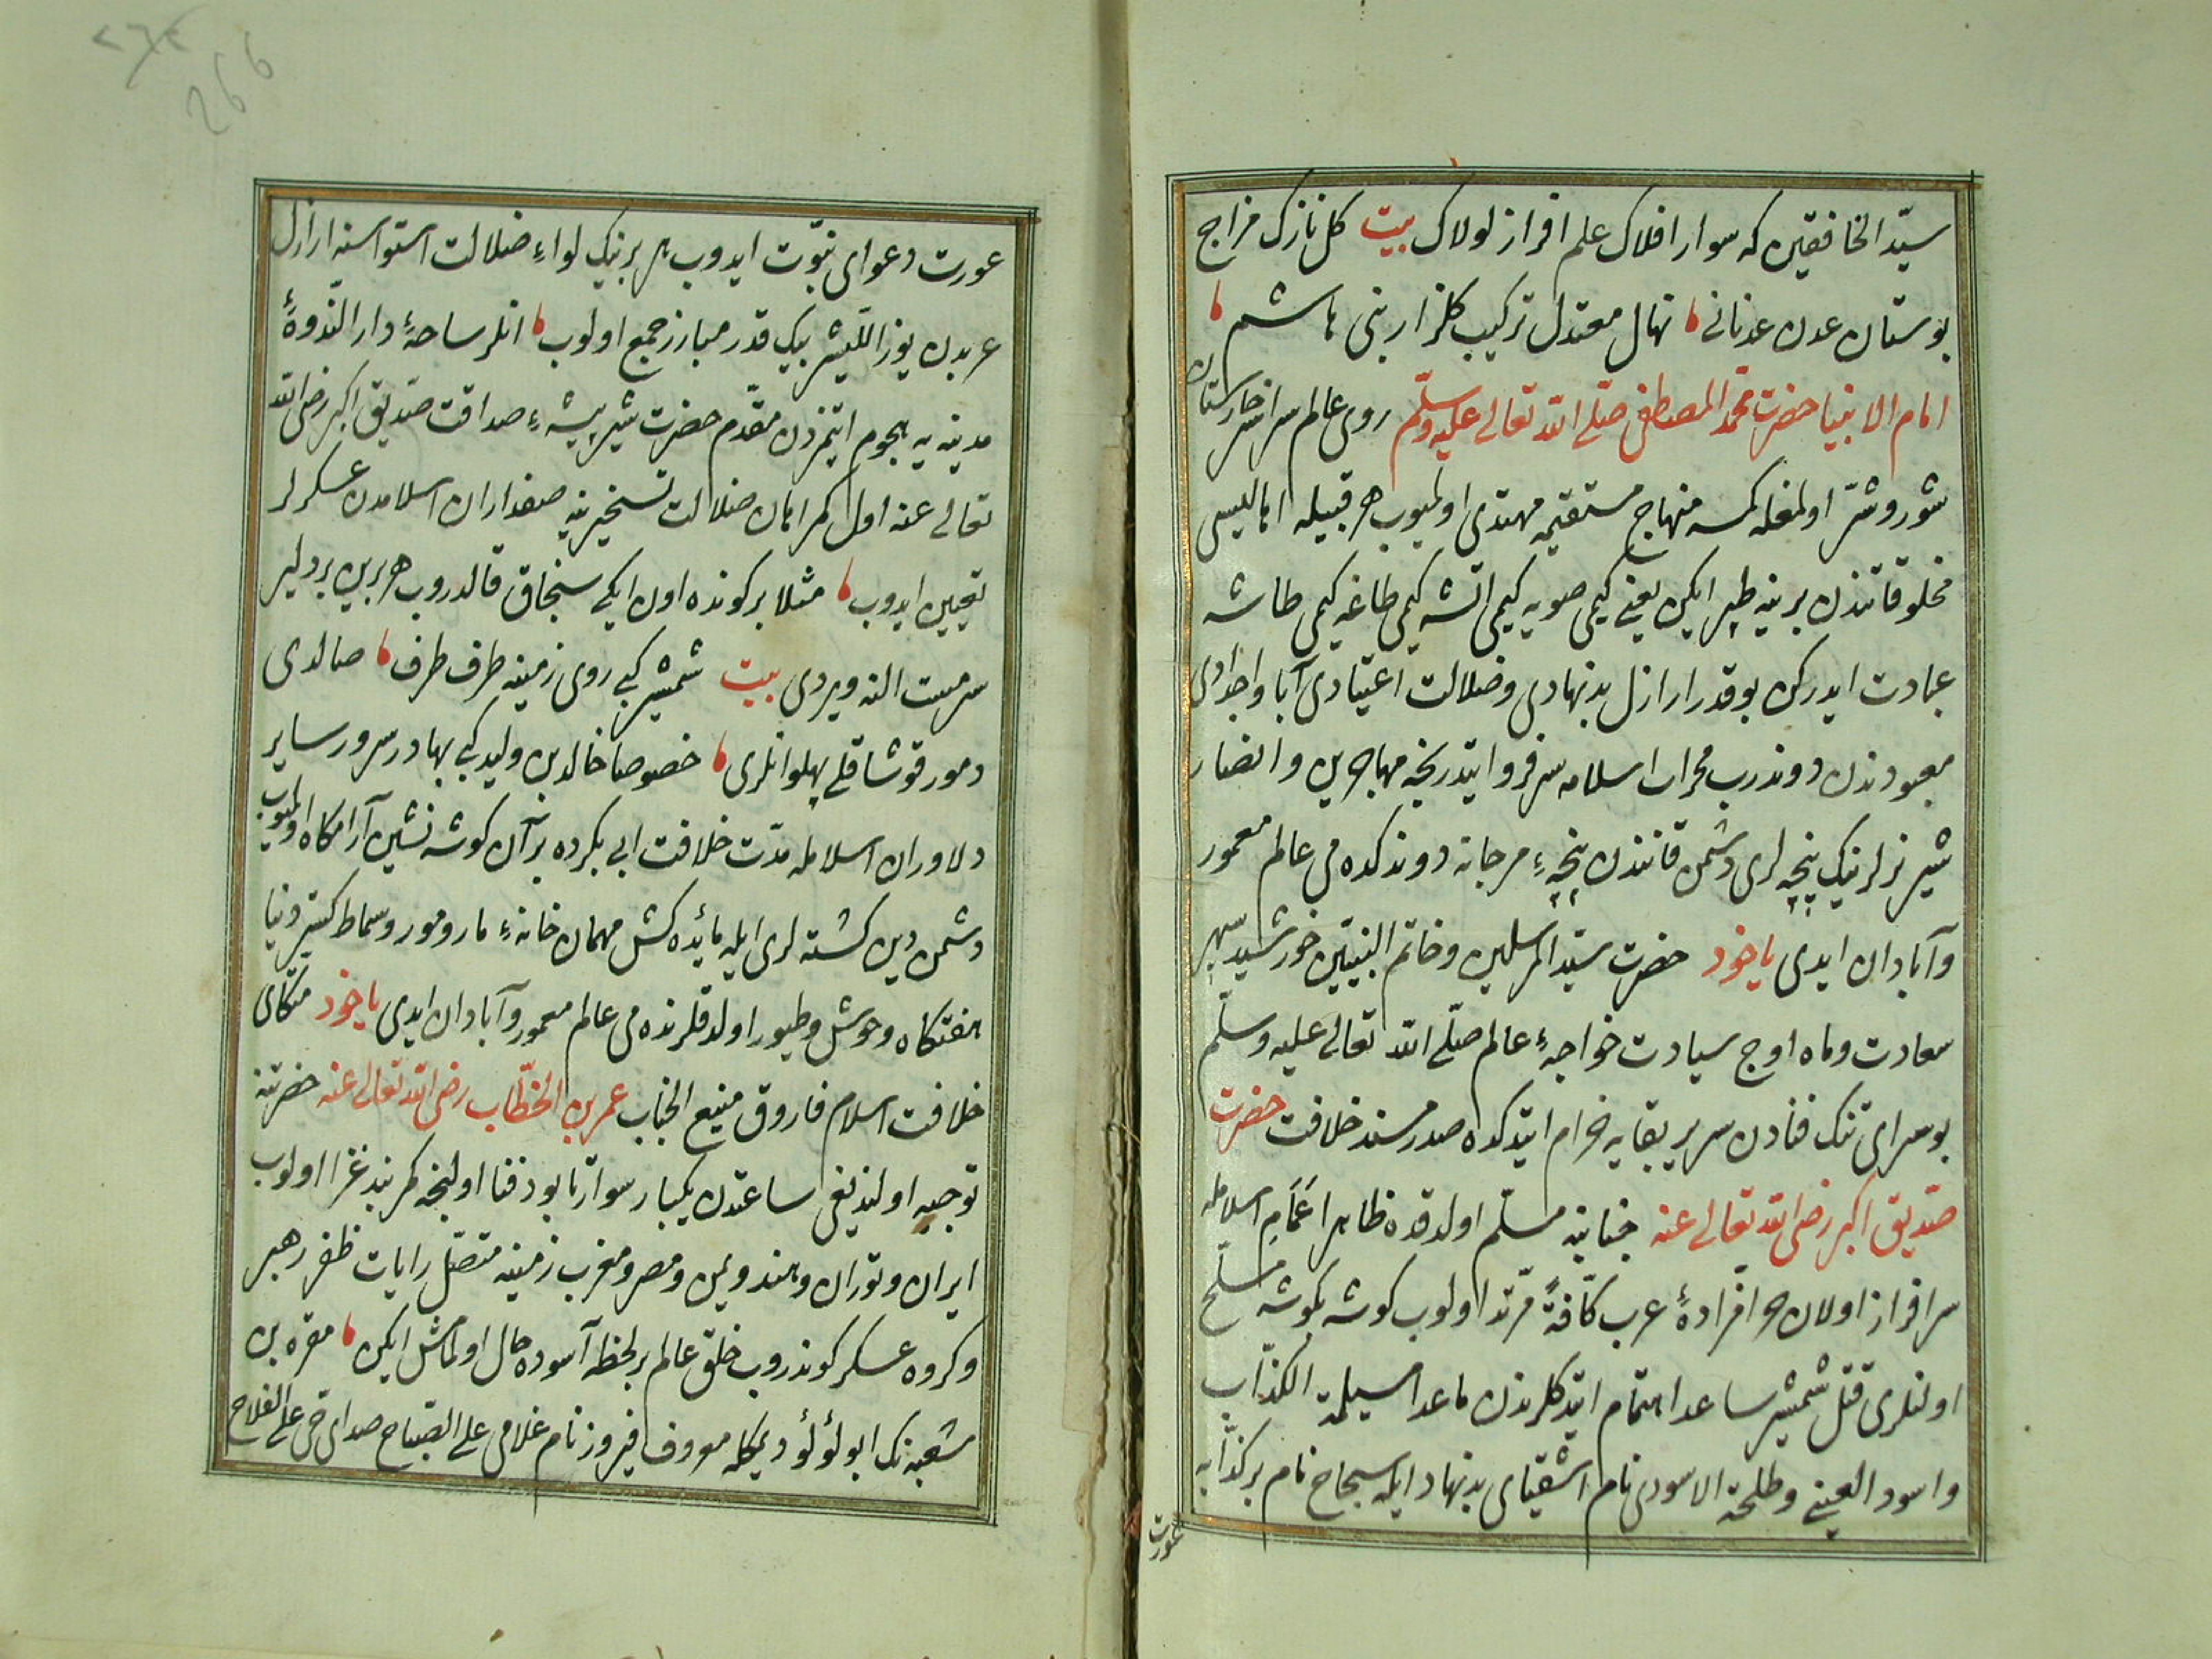 سيّد الخافقين كه سوار افلاك علم افراز لولاك بيت كل نازك مزاج
بوستان عدن عدنانى نهال معتدل تركيب كلزار بنى هاشم
امام الانبيا حضرت محمّد المصطفى صلّى الله تعالى عليه وسلّم روى عالم سراسر خارستان
شور وشرّ اولمغله كمسه منهاج مستقيمه مهتدى اولميوب هر قبيله اهاليسى
مخلوقاتندن برينه طپر ايكن يعنى كيمى صويه كيمى اتشه كيمى طاغه كيمى طاشه
عبادت ايدركن بو قدر ارازل بدنهادى وضلالت اعتيادى آبا واجدادى
معبودندن دوندرب محراب اسلامه سرفرو ايتدرنجه مهاجرين وانصار
شير نرلرينك پنجه لرى دشمن قانندن پنجۀ مرجانه دوندكده مى عالم معمور
وآبادان ايدى ياخود حضرت سيّد المرسلين وخاتم النبيّين خورشيد سپهر
سعادت وماه اوج سيادت خواجۀ عالم صلّى الله تعالى عليه وسلّم
بو سراى تنك فنادن سرير بقايه خرام ايتدكده صدر مسند خلافت حضرت
صدّيق اكبر رضى الله تعالى عنه جنابنه مسلّم اولدقده ظاهرا عَمَامِ اسلامله
سرافراز اولان هر افرادۀ عرب كافّةً مرتدّ اولوب كوشه بكوشه مسلّح
اولنلرى قتل شمشير ساعد اهتمام ايتدكلرندن ماعدا مسيلمة الكذّاب
واسود العينى وطلحة الاسودى نام اشقياى بدنهاد ايله سجاح نام بر كذّابه
عورت
عورت دعواى نبوّت ايدوب هر برينك لواء ضلالت استواسنه ارازل
عربدن يوز اللّيشر بيك قدر مبارز جمع اولوب انلر ساحۀ دار النّدوۀ
مدينه يه هجوم ايتمزدن مقدّم حضرت شير بيشۀ صداقت صدّيق اكبر رضى الله
تعالى عنه اول كمراهان ضلالت تسخيرينه صفداران اسلامدن عسكرلر
تعيين ايدوب مثلا بر كونده اون ايكى سنجاق قالدروب هر برين بر دلير
سرمست النه ويردى بيت شمشير كبى روى زمينه طرف طرف صالدى
دمور قوشاقلى پهلوانلرى خصوصا خالد بن وليد كبى بهادر سرور ساير
دلاوران اسلامله مدّت خلافت ابى بكرده بر آن كوشه نشين آرامكاه اولميوب
دشمن دين كشته لرى ايله مائده كش مهمان خانۀ مار ومور وسماط كستر دنيا
هفتكاه وحوش وطيور اولدقلرنده مى عالم معمور وآبادان ايدى ياخود متكاى
خلافت اسلام فاروق منيع الجناب عمر بن الخطّاب رضى الله تعالى عنه حضرتنه
توجيه اولنديغى ساعتدن يكبار سوار تابود فنا اولنجه كمربند غزا اولوب
ايران وتوران وهند ويمن ومصر ومغرب زمينه متصّل رايات ظفر رهبر
وكروه عسكر كوندروب خلق عالم بر لحظه آسوده حال اولمامش ايكن مغره بن
شعبه نك ابو لؤلؤ ديمكله معروف فيروز نام غلامى على الصّباح صداى حى على الفلاح
266